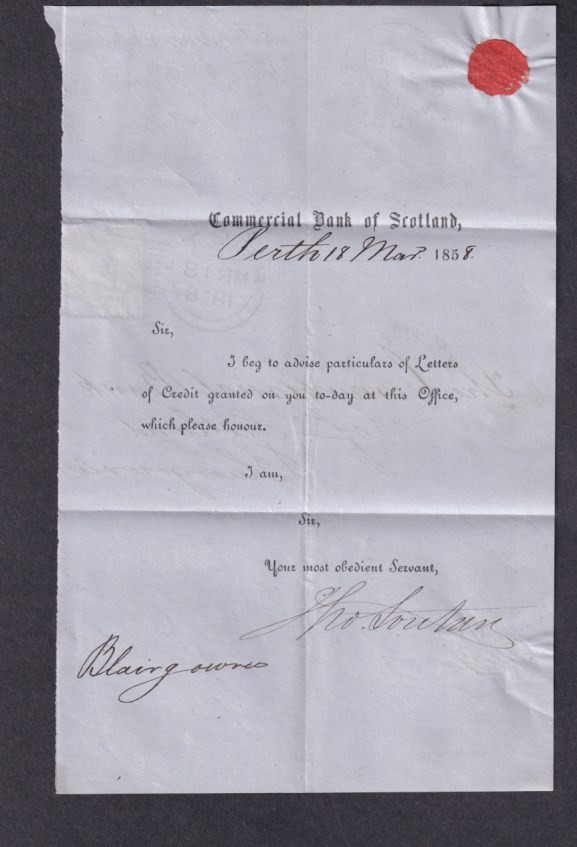 Commercial Bank of Scotland,
Perth 18 Mar. 1858.
Sir,
I beg to advise particulars of Letters
of Credit granted on you to-day at this Office,
which please honour.
I am,
Sir,
Your most obedient Servant,
Tho. Soutar
Blairgowrie